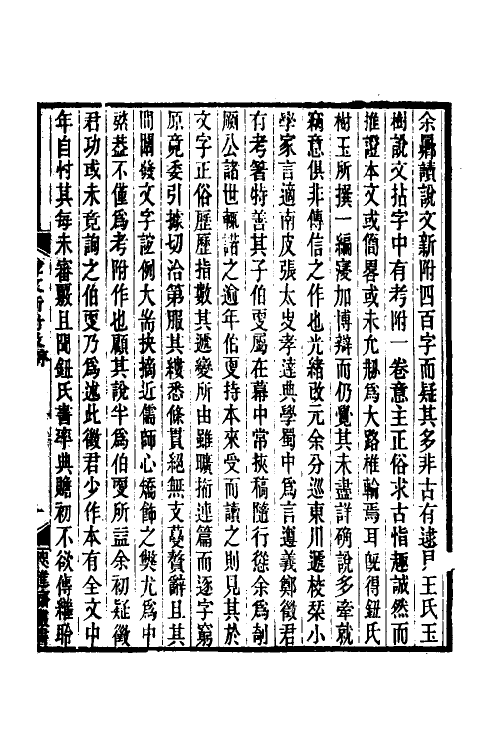 余曩讀說文新附四百字而疑其多非古有逮見王氏玉
樹說文拈字中有考附一卷意主正俗求古指趣誠然而
推證本文或簡畧或未允赫爲大路椎輪焉耳旣得鈕氏
樹玉所撰一編凝加博辯而仍覺其未盡詳确說多牽就
竊意俱非傳信之作也光緒改元余分巡東川遞校栞小
學家言適南皮張太㕜孝達典學蜀中爲言遵義鄭徵君
有考箸特善其子伯㪅屬在幕中常挾稿隨行慫余爲刱
厥公諸世輒諾之逾年伯㪅持本來受而讀之則見其於
文字正俗歷歷指數其遞變所由雖曠連篇而逐字窮
原竟委引據切洽第服其縷悉條貫絕無支蔓贅辭且其
間闡發文字證例大耑抉摘近儒師心矯飾之獘尤爲中
葢不僅爲考附作也顧其說半爲伯㪅所益余初疑徵
君功或未竟詢之伯㪅乃爲述此徵君少作本有全文中
年自忖其每未審覈且聞鈕氏書率典贍初不欲傳
說文新附考
一
咫進齋叢書